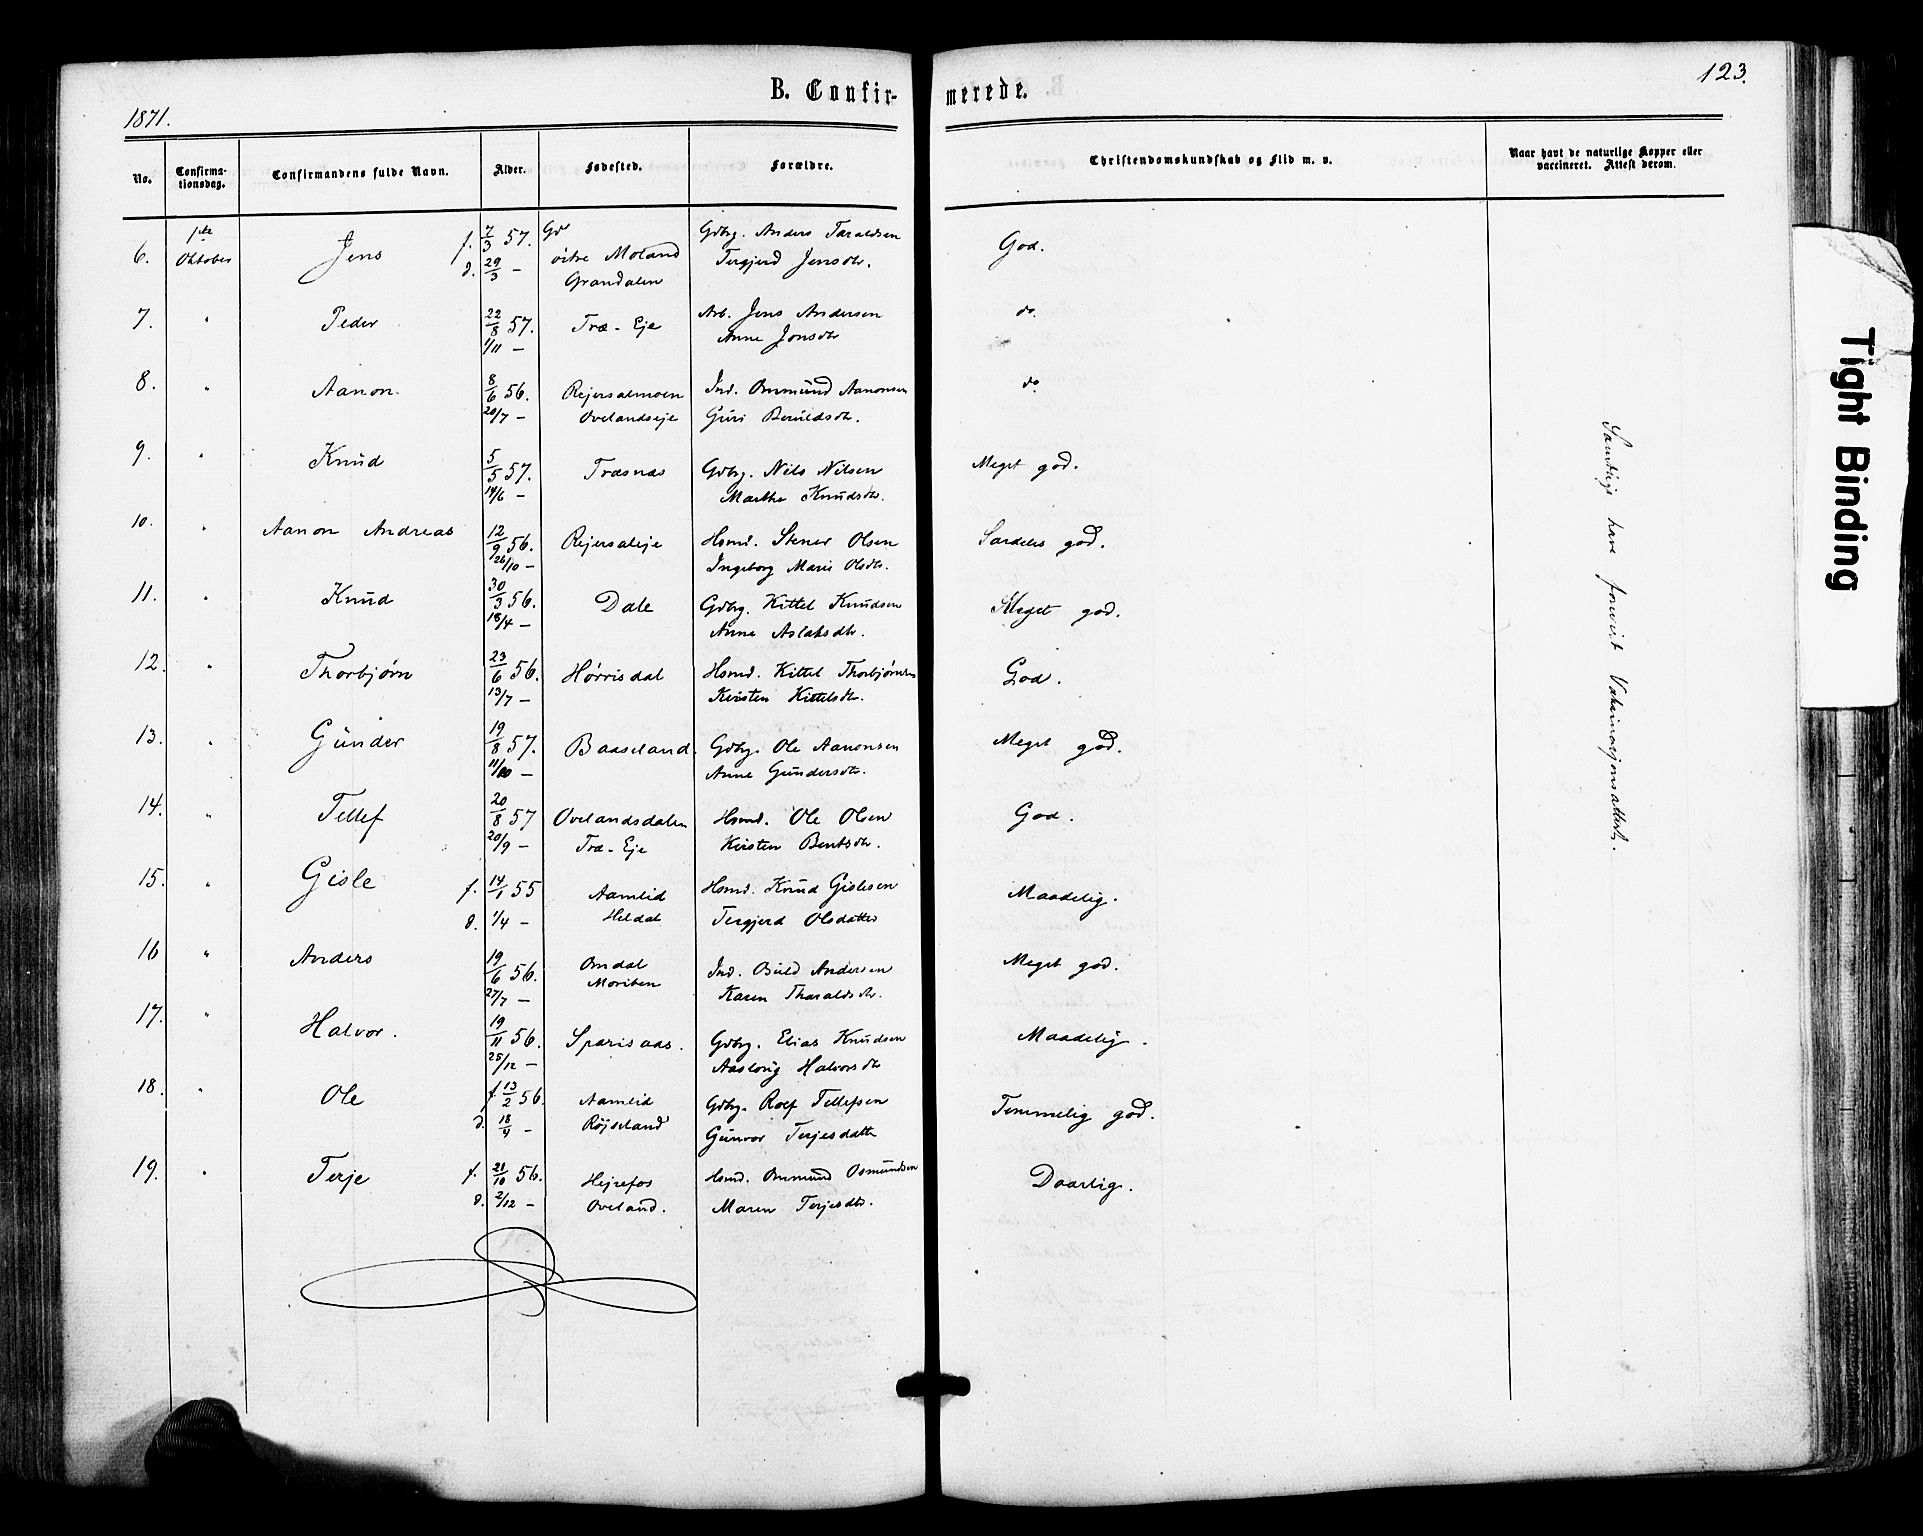 B. Confirmerede.
123.
1871.
No. Confirmationsdag. Confirmandens fulde Navn. Alder. Fødested. Forældre. Christendomskundskab og Flid m. v. Naar havt de naturlige Kopper eller vaccineret. Attest derom.
6. 1ste Oktober Jens f. 7/3 57. Gd Gdbrg. Anders Taraldsen God.
d. 29/3 — östre Moland Tergjerd Jensdtr.
Grandalen
7. " Peder 22/8 57. Træ-Eje Arb. Jens Andersen do.
1/11 — Anne Jonsdtr
8. " Aanon. 8/6 56. Rejersalmoen Ind. Ommund Aanonsen do
20/7 — Ovelandseje Guri Beruldsdtr.
9. " Knud 5/5 57. Træsnæs Gdbrg. Nils Nilsen Meget god.
14/6 — Marthe Knudsdtr.
10. " Aanon Andreas 12/9 56. Rejersaleje Hsmd. Stener Olsen Særdeles god.
26/10 — Ingeborg Marie Olsdtr.
11. " Knud 30/3 56. Dale Gdbrg. Kittel Knudsen Meget god.
18/4 — Anne Aslaksdtr.
12. " Thorbjørn 23/6 56. Hørrisdal Hsmd. Kittel Thorbjørnsen God.
13/7 — Kirsten Kittelsdtr.
13. " Gunder 19/8 57. Baaseland. Gdbrg. Ole Aanonsen Meget god.
11/10 — Anne Gundersdtr.
14. " Tellef 20/8 57 Ovelandsdalen Hsmd. Ole Olsen God.
20/9 — Træ-Eje Kirsten Bentsdtr.
15. " Gisle f. 14/1 55 Aamlid Hsmd. Knud Gislesen Maadelig.
d. 1/4 — Heldal Tergjerd Olsdatter
16 " Anders 19/6 56. Omdal Ind. Buld Andersen Meget god.
27/7 — Moriben Karen Tharaldsdtr.
17. " Halvor. 19/11 56. Sparisaas. Gdbrg. Elias Knudsen Maadelig.
25/12 — Aaslovig Halvorsdtr
18. " Ole f. 13/2 56. Aamlid Gdbrg. Roef Tellefsen Temmelig god.
d. 18/4 — Röjseland Gunvor Terjesdattr
19. " Terje f. 21/10 56. Hejrefos Hsmd. Ommund Osmundsen Daarlig.
d. 2/12 — Oveland. Maren Terjesdtr.
Samtlige have foreviist Vakcinasjonsattest.
Tight Binding